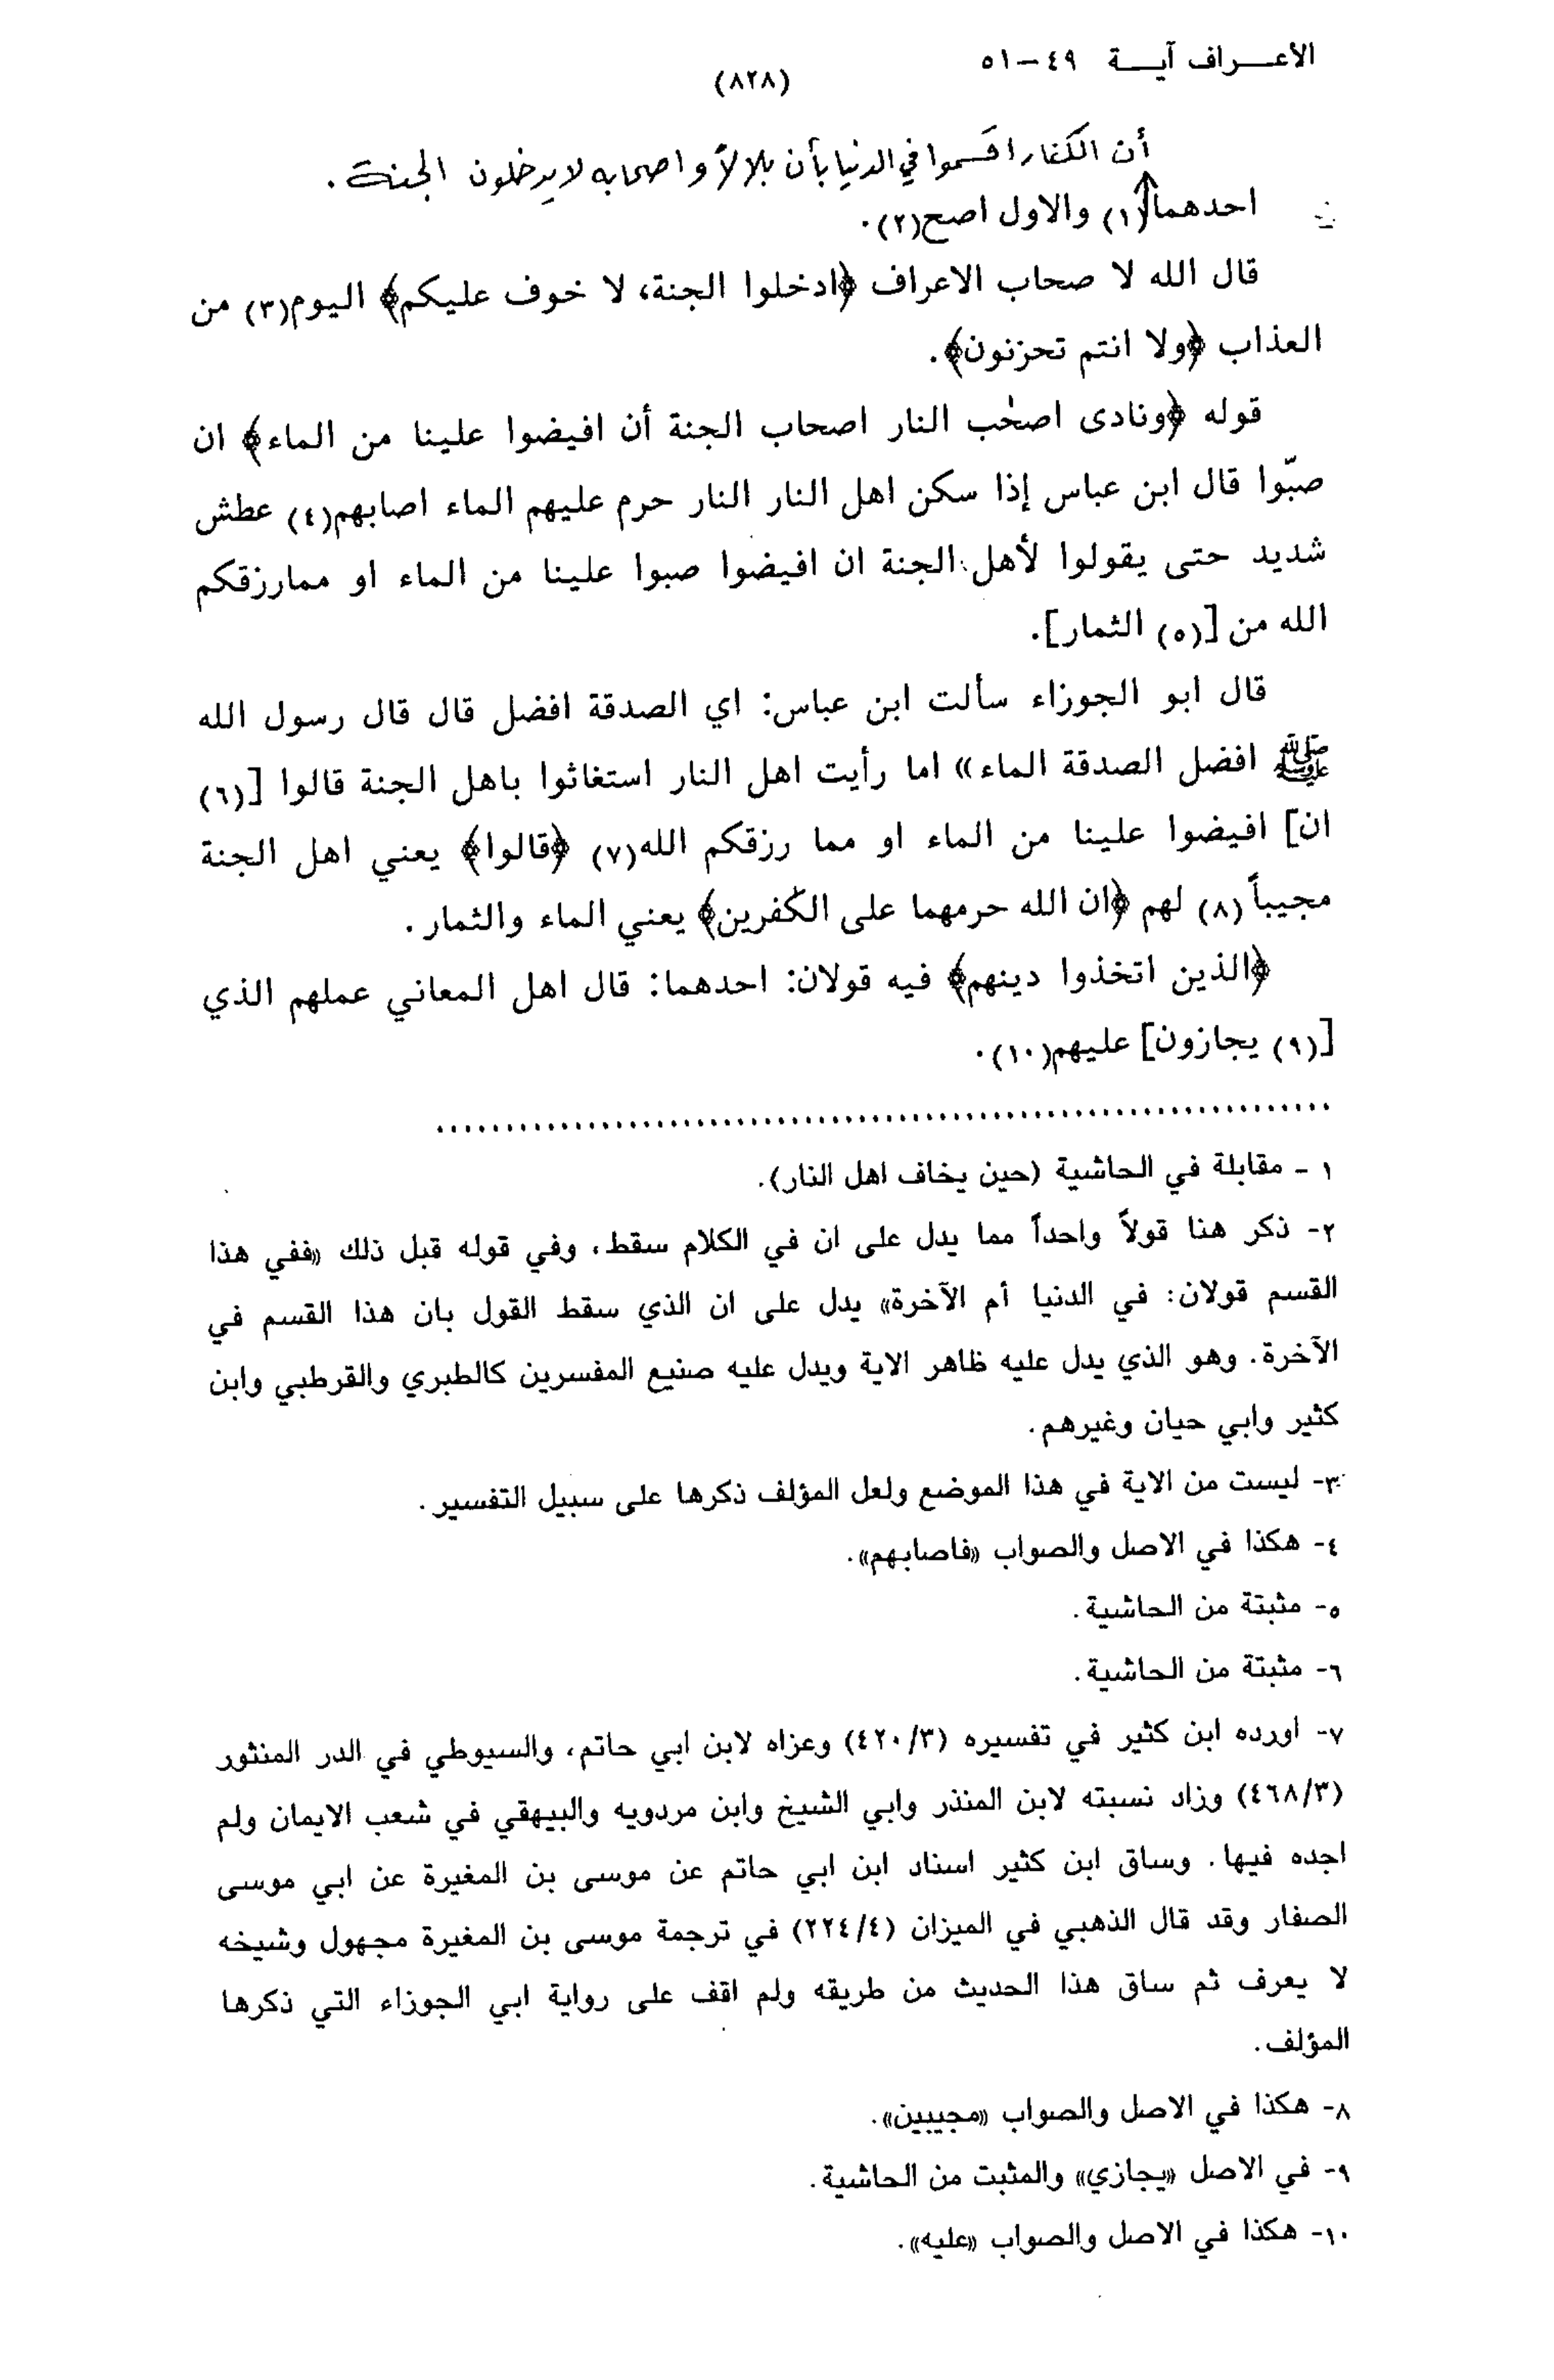 الاعـــراف آيــــة ٤٩-٥١
(٨٢٨)
أن الكفار اقسموا في الدنيا بأن بلالاً و اصحابه لا يدخلون الجنة .
احدهما(١) والاول اصح(٢).
قال الله لا صحاب الاعراف ﴿ادخلوا الجنة، لا خوف عليكم﴾ اليوم(٣) من
العذاب ﴿ولا انتم تحزنون﴾.
قوله ﴿ونادى اصحٰب النار اصحاب الجنة أن افيضوا علينا من الماء﴾ ان
صبّوا قال ابن عباس إذا سكن اهل النار النار حرم عليهم الماء اصابهم(٤) عطش
شديد حتى يقولوا لأهل الجنة ان افيضوا صبوا علينا من الماء او ممارزقكم
الله من [(٥) الثمار].
قال ابو الجوزاء سألت ابن عباس: اي الصدقة افضل قال قال رسول الله
ﷺ افضل الصدقة الماء» اما رأيت اهل النار استغاثوا باهل الجنة قالوا [(٦)
ان] افيضوا علينا من الماء او مما رزقكم الله(٧) ﴿قالوا﴾ يعني اهل الجنة
مجيباً (٨) لهم ﴿ان الله حرمهما على الكٰفرين﴾ يعني الماء والثمار.
﴿الذين اتخذوا دينهم﴾ فيه قولان: احدهما: قال اهل المعاني عملهم الذي
[(٩) يجازون] عليهم(١٠).
١ - مقابلة في الحاشية (حين يخاف اهل النار).
٢- ذكر هنا قولاً واحداً مما يدل على ان في الكلام سقط، وفي قوله قبل ذلك «ففي هذا
القسم قولان: في الدنيا أم الآخرة» يدل على ان الذي سقط القول بان هذا القسم في
الآخرة. وهو الذي يدل عليه ظاهر الاية ويدل عليه صنيع المفسرين كالطبري والقرطبي وابن
كثير وابي حيان وغيرهم.
٣- ليست من الاية في هذا الموضع ولعل المؤلف ذكرها على سبيل التفسير.
٤- هكذا في الاصل والصواب «فاصابهم».
٥- مثبتة من الحاشية.
٦- مثبتة من الحاشية.
٧- اورده ابن كثير في تفسيره (٤٢٠/٣) وعزاه لابن ابي حاتم، والسيوطي في الدر المنثور
(٤٦٨/٣) وزاد نسبته لابن المنذر وابي الشيخ وابن مردويه والبيهقي في شعب الايمان ولم
اجده فيها. وساق ابن كثير اسناد ابن ابي حاتم عن موسى بن المغيرة عن ابي موسى
الصفار وقد قال الذهبي في الميزان (٢٢٤/٤) في ترجمة موسى بن المغيرة مجهول وشيخه
لا يعرف ثم ساق هذا الحديث من طريقه ولم اقف على رواية ابي الجوزاء التي ذكرها
المؤلف.
٨- هكذا في الاصل والصواب «مجيبين».
٩- في الاصل «يجازي» والمثبت من الحاشية.
١٠- هكذا في الاصل والصواب «عليه».